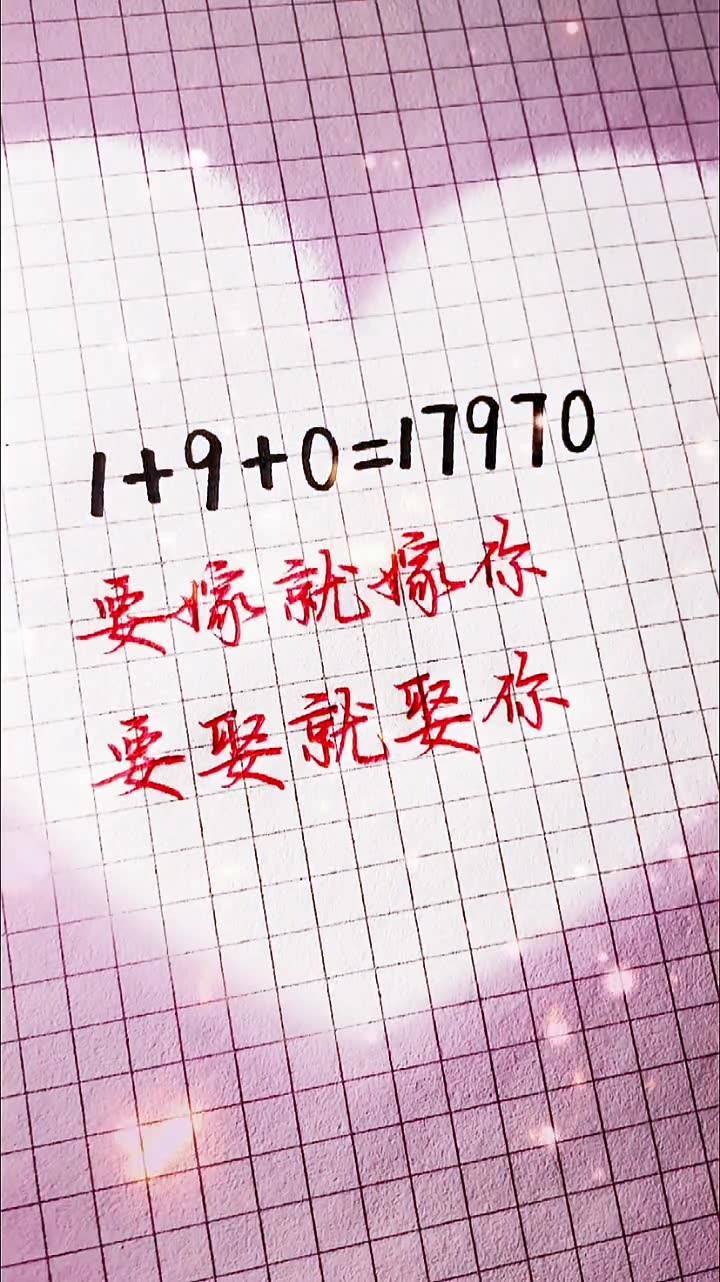 1+9+0=17970
要嫁就嫁你
要娶就娶你